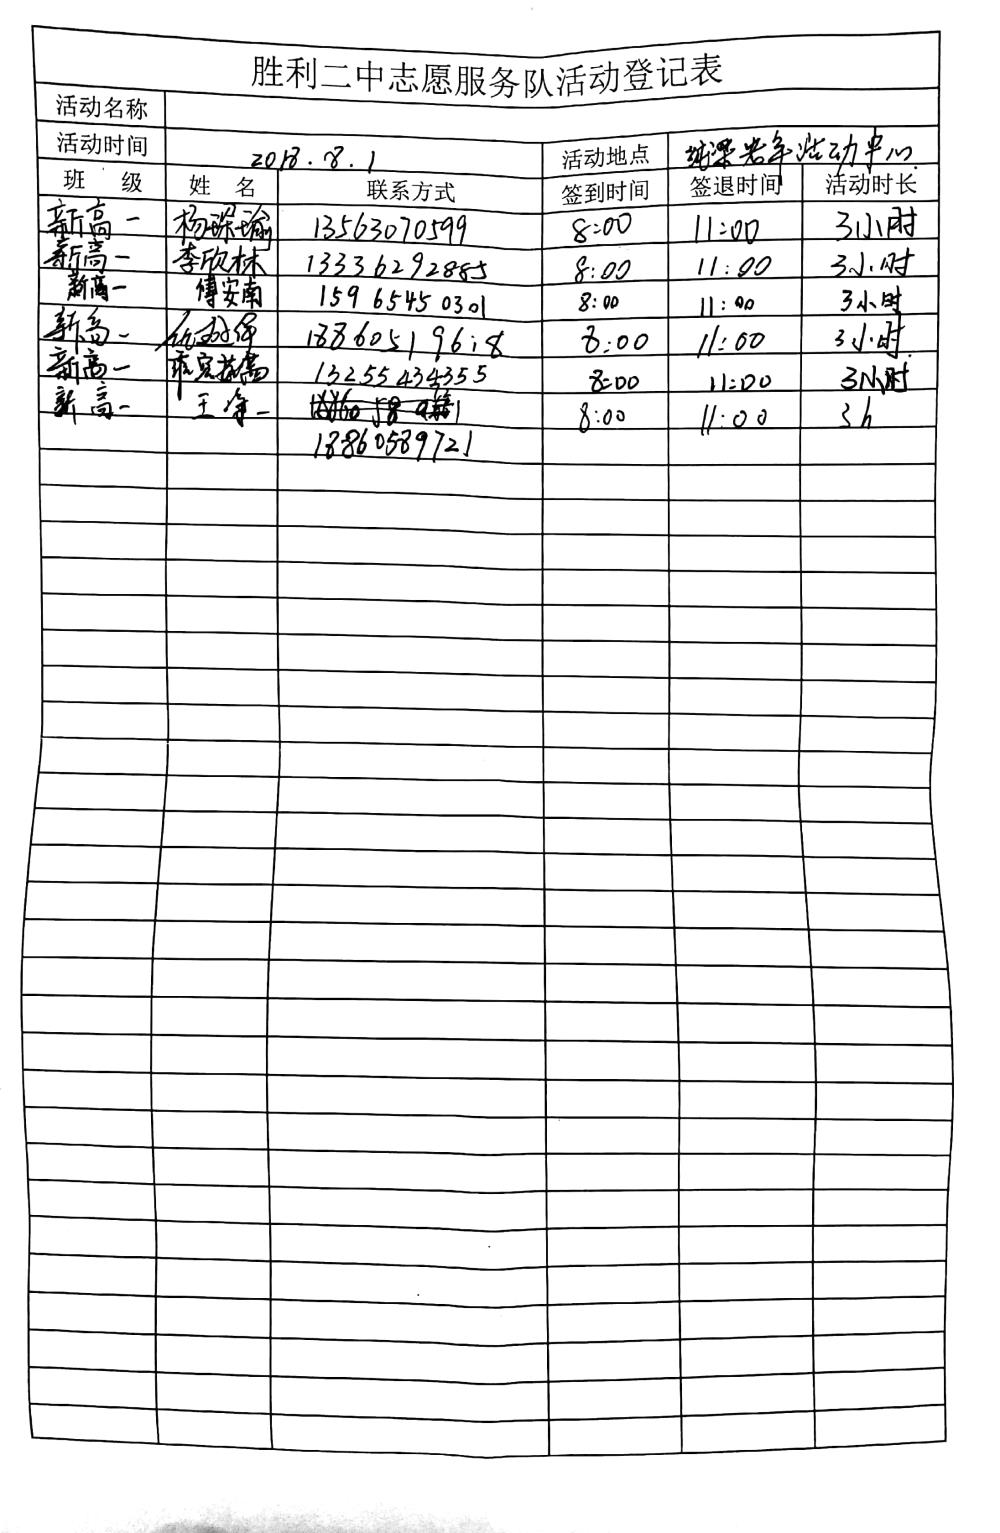 胜利二中志愿服务队活动登记表
活动名称
活动时间 2018.8.1 活动地点 老年活动中心
班 级 姓 名 联系方式 签到时间 签退时间 活动时长
新高一 杨琛瑜 13563070599 8:00 11:00 3小时
新高一 李欣林 13336292885 8:00 11:00 3小时
新高一 傅安南 15965450301 8:00 11:00 3小时
新高一 8:00 11:00 3小时
新高一 13255434355 8:00 11:00 3小时
新高一 王 一 8:00 11:00 3h
18860589721